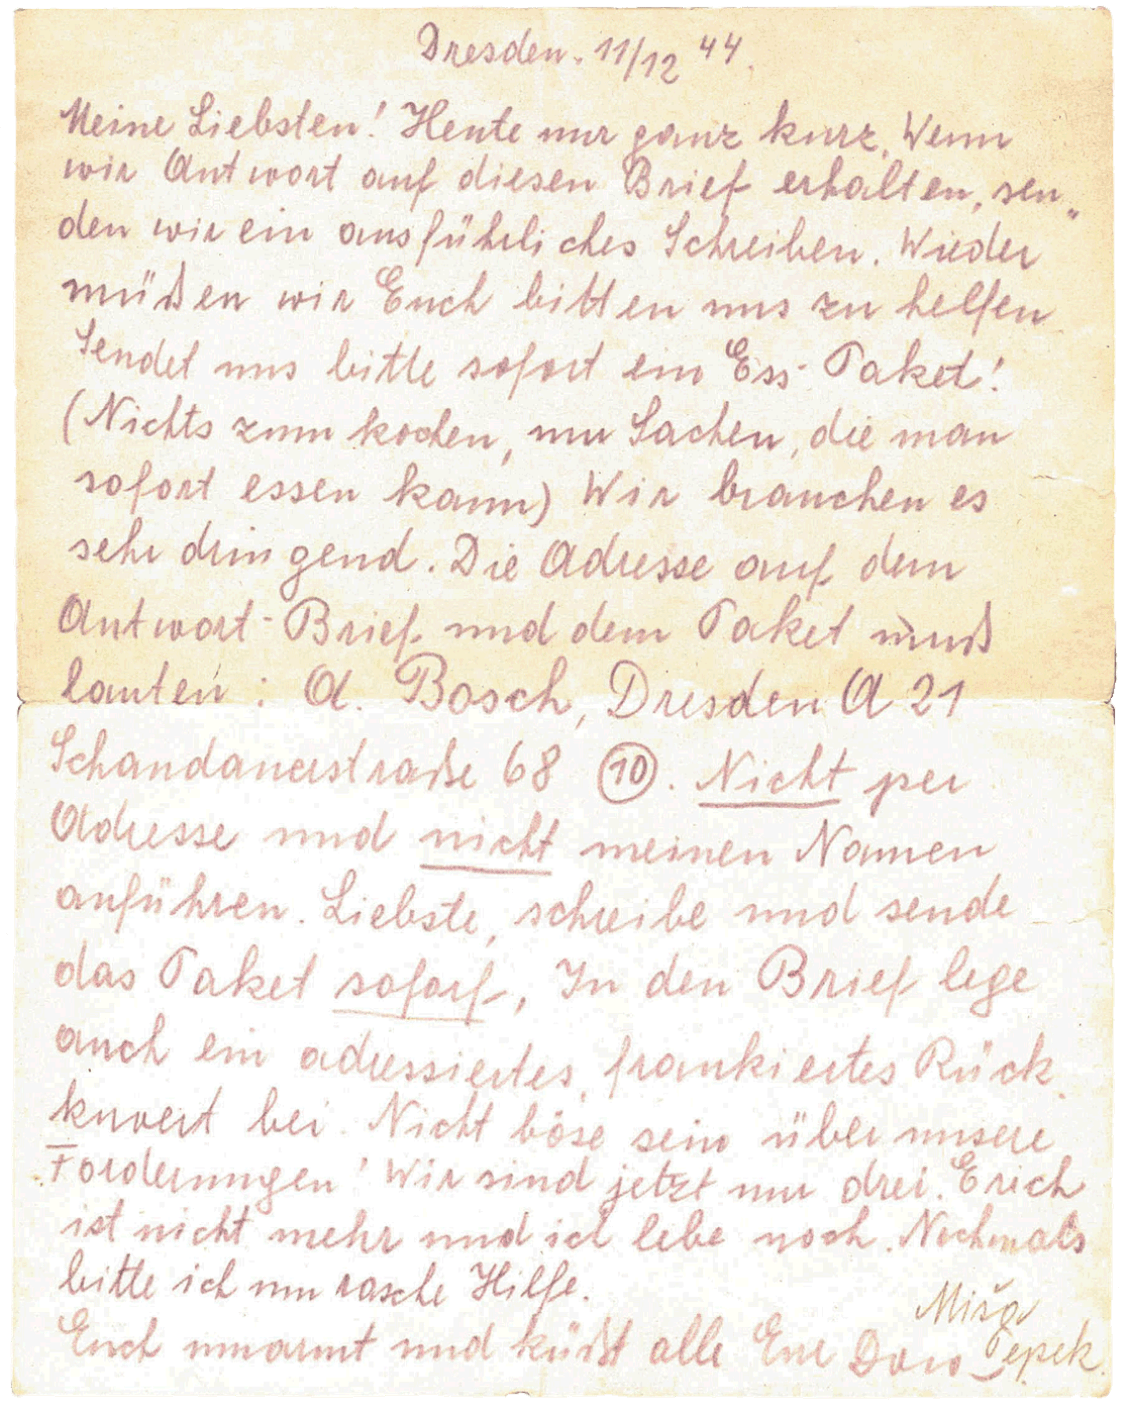 Dresden. 11/12 44.
Meine Liebsten! Heute nur ganz kurz. Wenn
wir Antwort auf diesen Brief erhalten, sen„
den wir ein ausführliches Schreiben. Wieder
müßen wir Euch bitten uns zu helfen
Sendet uns bitte sofort ein Ess-Paket!
(Nichts zum kochen, nur Sachen, die man
sofort essen kann) Wir brauchen es
sehr dringend. Die Adresse auf dem
Antwort-Brief und dem Paket muß
lauten: A. Bosch, Dresden A 21
Schandauerstraße 68 (10). Nicht per
Adresse und nicht meinen Namen
anführen. Liebste, schreibe und sende
das Paket sofort, In den Brief lege
auch ein adressiertes, frankiertes Rück
kuvert bei. Nicht böse sein über unsere
Forderungen! Wir sind jetzt nur drei. Erich
ist nicht mehr und ich lebe noch. Nochmals
bitte ich um rasche Hilfe.
Miša
Euch umarmt und küßt alle Eur Doro
Pepek.